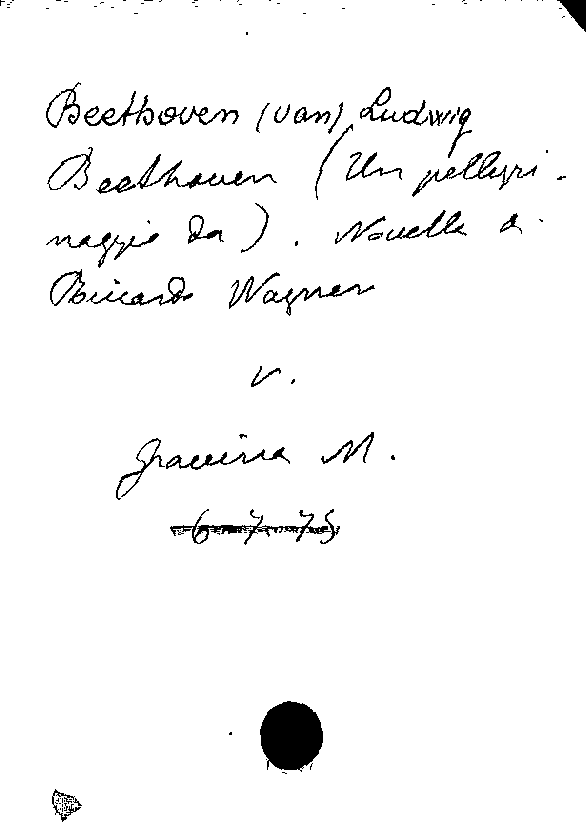 Beethoven (van) Ludwig
Beethoven (Un pellegri-
naggio da). Novella di
Riccardo Wagner
v.
Gravina M.
6 7 75